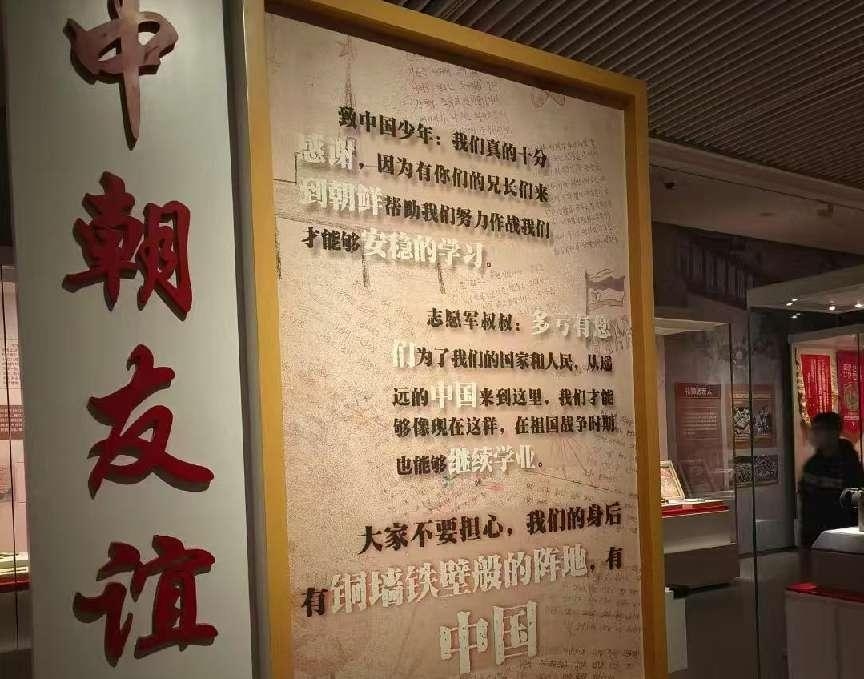 中朝友谊
致中国少年：我们真的十分
感谢，因为有你们的兄长们来
到朝鲜帮助我们努力作战我们
才能够安稳的学习。
志愿军叔叔：多亏有您
们为了我们的国家和人民，从遥
远的中国来到这里，我们才能
够像现在这样，在祖国战争时期
也能够继续学业。
大家不要担心，我们的身后
有铜墙铁壁般的阵地，有
中国